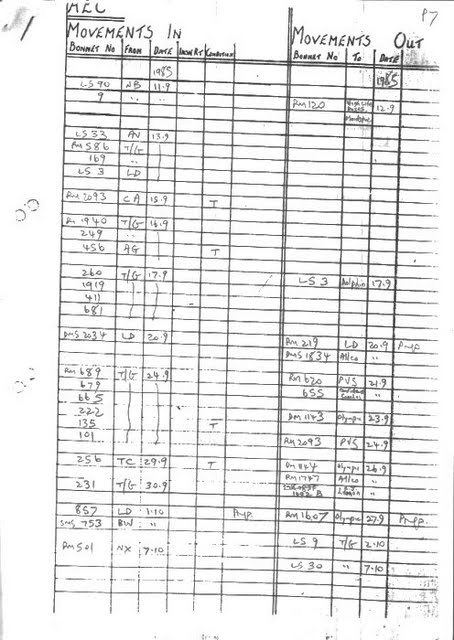 MEC
P7
MOVEMENTS IN
BONNET No FROM DATE INCHRT CONDITION
1985
LS 90 NB 11.9
9 " "
LS 33 AV 13.9
RM 586 T/G
169 "
LS 3 LD
RM 2093 CA 15.9 T
RM 1940 T/G 16.9
249 "
456 AG T
260 T/G 17.9
1919
411
681
DMS 2034 LD 20.9
RM 689 T/G 24.9
679
665
222
135 T
101
256 TC 29.9 T
231 T/G 30.9
857 LD 1.10 Pmp.
SMS 753 BW "
RM 501 NX 7.10
MOVEMENTS OUT
BONNET No To DATE
1985
RM 120 12.9
LS 3 Dolphin 17.9
RM 219 LD 20.9 Pmp
DMS 1834 Allco "
RM 620 PVS 21.9
655 "
DM 1143 Olympic 23.9
RM 2093 PVS 24.9
DM 844 Olympic 26.9
RM 1747 Allco "
RM 1607 Olympic 27.9 Pmp.
LS 9 T/G 2.10
LS 30 " 7.10